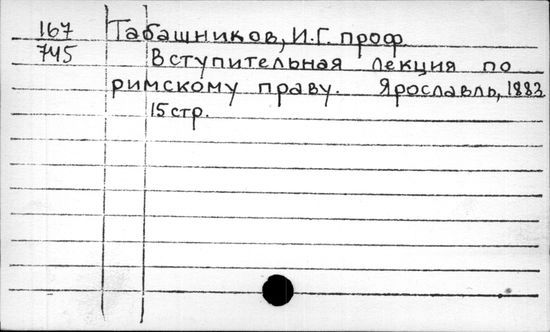 167 Табашников, И.Г. проф
745 Вступительная лекция по
римскому праву. Ярославль, 1883
15 стр.